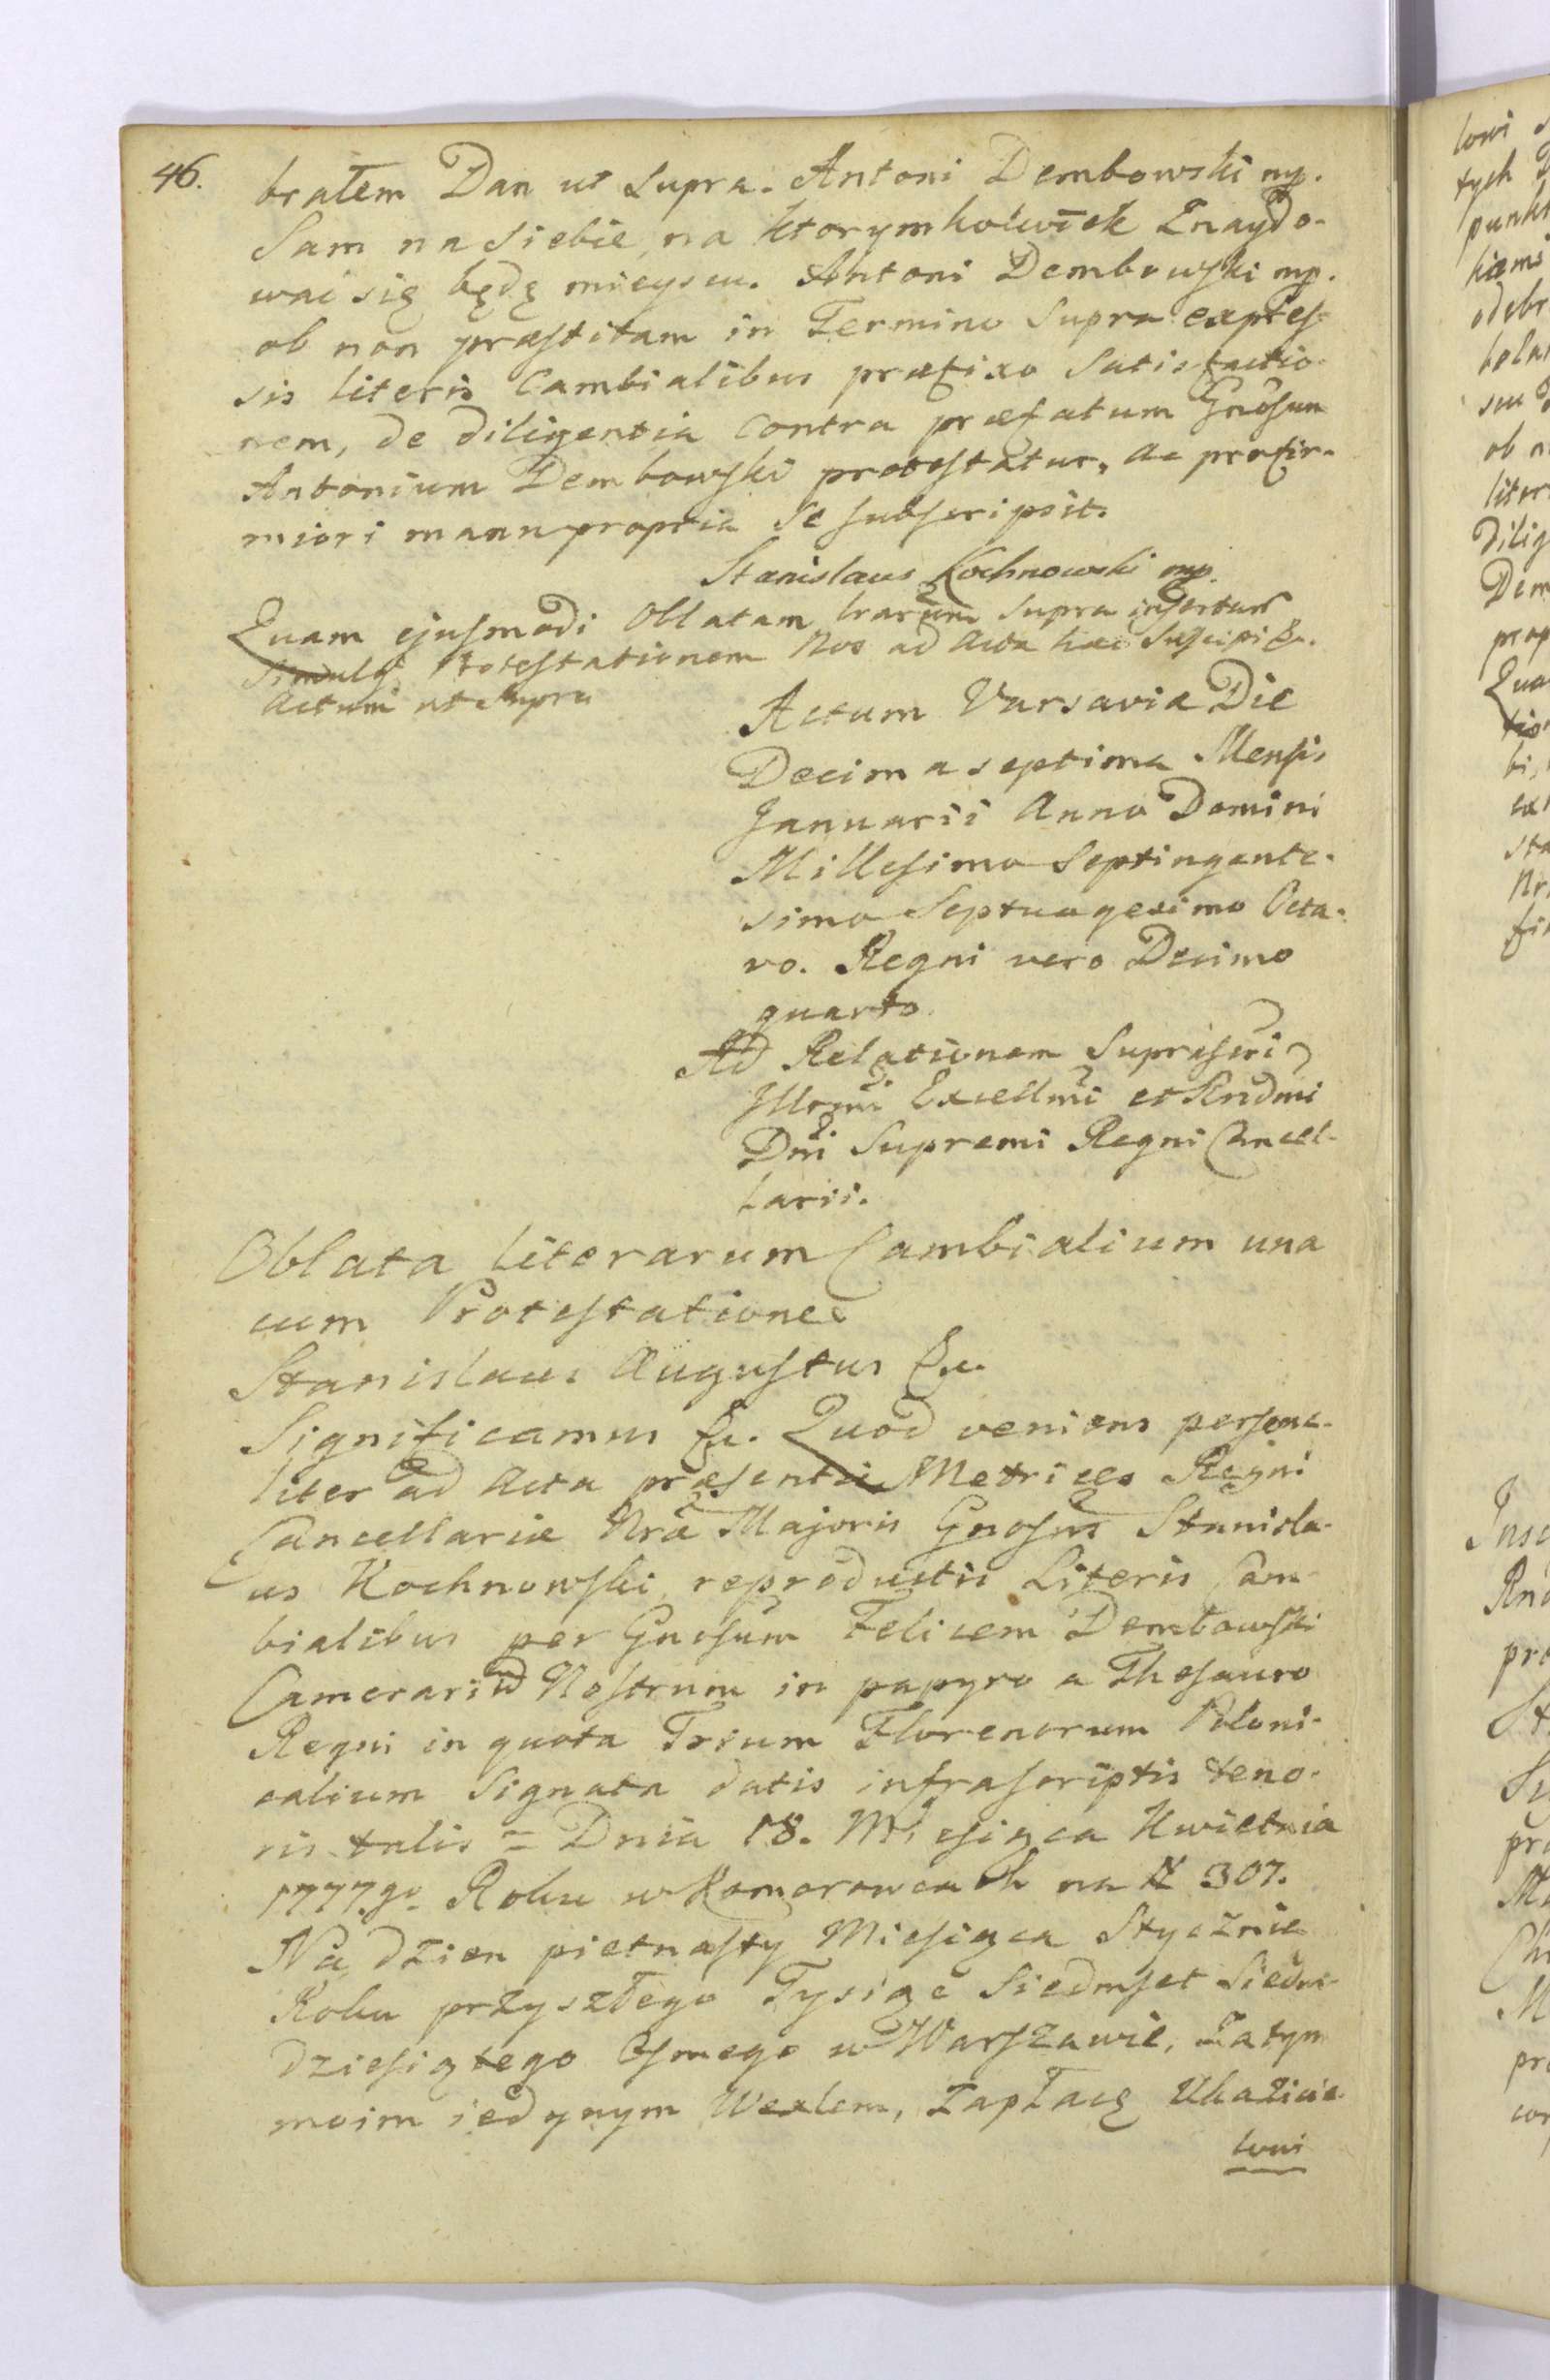 46.
brałem Dan ut Supra. Antoni Dembowski mp.
Sam na siebie, na ktorymkolwiek Znaydo-
wać się będę mieyscu. Antoni Dembowski mp.
ob non præstitam in Termino Supra expres-
sis literis Cambialibus præfixo Satisfactio-
nem, de diligentia contra præfatum Gnosum
Antonium Dembowski protestatur, ac pro fir-
miori manu propria se subscripsit.
Stanislaus Kochnowski mp.
Quam ejusmodi Oblatam lrarum supra insertar
simulq Protestationem Nos ad Acta hæc suscipi &c.
Actum ut supra
Actum Varsaviæ Die
Decima septima Mensis
Januarii Anno Domini
Millesimo Septingente-
simo Septuagesimo Octa-
vo. Regni vero Decimo
quarto.
Ad Relationem Suprascri
Illmi Excellmi et Rndmi
Dni Supremi Regni Cancel-
larii.
Oblata literarum Cambialium una
cum Protestatione
Stanislaus Augustus &c.
Significamus &c. Quod veniens persona-
liter ad Acta præsentia Metrices Regni
Cancellariæ Nræ Majoris Gnosus Stanisla-
us Kochnowski reproductis Literis Cam-
bialibus per Gnosum Felicem Dembowski
Camerarium Nostrum in papyro a Thesauro
Regni in quota Trium Florenorum Poloni-
calium signata datis infrascriptis teno-
ris talis = Dnia 18. Miesiąca Kwietnia
1777.go Roku w Komorowcach na # 307.
Na dzien pietnasty Miesiąca Stycznia
Roku przyszłego Tysiąc Siedmset Siedm-
dziesiątego Osmego w Warszawie, Za tym
moim iedynym Wexlem, Zapłacę Ukazicie-
lowi